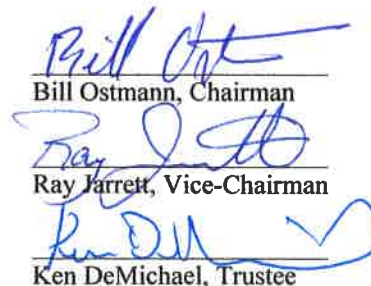 Bill Ost
Bill Ostmann, Chairman
Ray Jarrett
Ray Jarrett, Vice-Chairman
Ken DeM
Ken DeMichael, Trustee